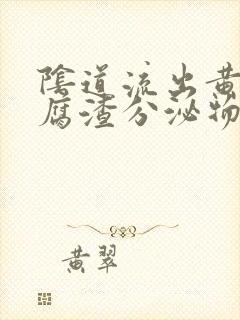 陰道流出黃
腐渣分泌物
黄翠